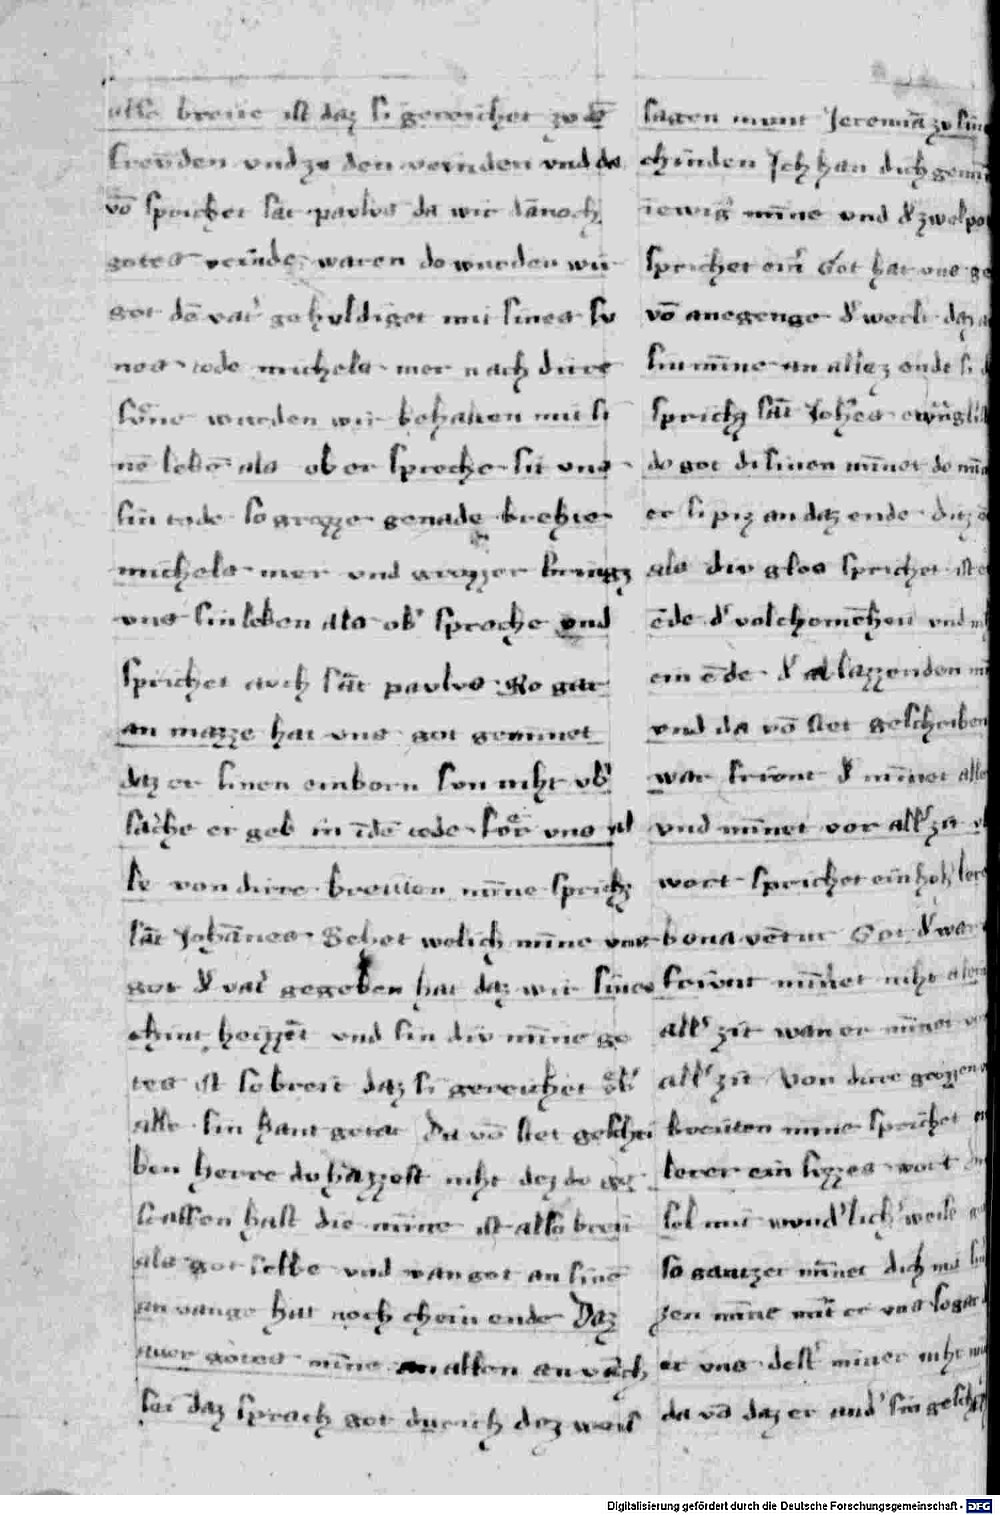 alse breite ist daz si gereichet zu dē
freunden vnd zu den veinden vnd da
vō sprichet sāt paulus da wir dānoch
gotes veinde waren do wurden wir
got dē vat' gehuldiget mit sines su
nes tode michels mer nach dirre
sůne wurden wir behalten mit si
nē lebē als ob er spreche sit vns
sin tode so grozze genade brehte
michels mer vnd grozzer bringz
vns sin leben als ob' spreche vnd
sprichet auch sāt paulus So gar
an mazze hat vns got geminnet
daz er sinen einborn sun niht vb'
sache er geb in ī dē tode for vns al
le von dirre breiten mīne sprichz
sāt Johānes Sehet welich mīne vns
got d' vat' gegeben hat daz wir sines
chint heizzēt vnd sin div mīne go
tes ist so breit daz si gereichet vb'
alle sin hant getat Da vō stet geschri
ben herre du hazzest niht dez du ge
schaffen hast die mīne ist also breit
als got selbe vnd wan got an sinē
an vange hat noch chein ende Daz
auer gotes mīne an allen an vāch
sei daz sprach got durich dez weis
sagen munt Jeremia zu sin
chinden Ich han dich gemī
īewig' mīne vnd d' zwelpo
sprichet ein' Got hat vns ge
vō anegenge d' werlt daz
sin mīne an allez ende si
sprichz sāt Johēs ewāglist
do got di sinen mīnet do mī
er si piz an daz ende ditz
als div glos sprichet ist
ēde d' volchomēheit vnd
ein ēde d' ablazzenden
vnd da vō stet geschriben
war frivnt d' mīnet alle
vnd mīnet vor all' zit
wort sprichet ein hoh' lere
bona vētur Got d' war
frivnt mīnet niht alein
all' zit wan er mīnet vor
all' zit Von dirre grozzen
breiten mīne sprichet
lerer ein suzzes wort
sol mit wund'lich' weise
so gantzer mīnet dich mit
zen mīne mīt er vns so gar
er vns dest' miner niht
da vō daz er and' sin gesch
Digitalisierung gefördert durch die Deutsche Forschungsgemeinschaft - DFG